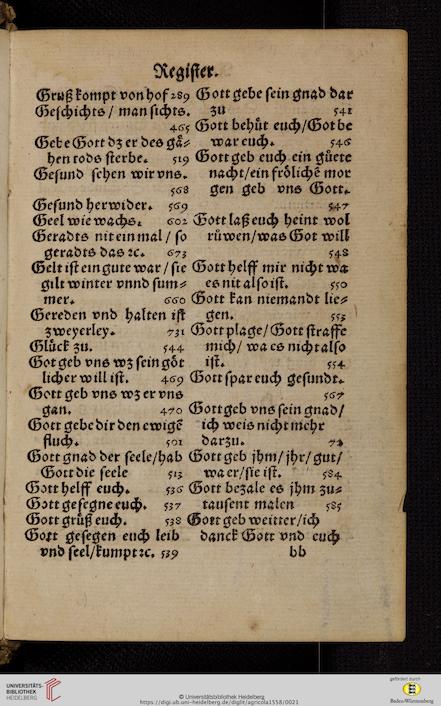 Register.
Gruß kompt von hof 289
Geschichts / man sichts.
465
Gebe Gott dz er des gä⸗
hen tods sterbe. 519
Gesund sehen wir vns.
568
Gesund her wider. 569
Geel wie wachs. 602
Geradts nit ein mal / so
geradts das ꝛc. 673
Gelt ist ein gute war / sie
gilt winter vnnd sum⸗
mer. 660
Gereden vnd halten ist
zweyerley. 731
Glück zu. 544
Got geb vns wz sein göt
licher will ist. 469
Gott geb vns wz er vns
gan. 470
Gott gebe dir den ewigē
fluch. 501
Gott gnad der seele/hab
Gott die seele 513
Gott helff euch. 536
Gott gesegne euch. 537
Gott grüß euch. 538
Gott gesegen euch leib
vnd seel/kumpt ꝛc. 539
Gott gebe sein gnad dar
zu 541
Gott behüt euch/Got be
war euch. 546
Gott geb euch ein güete
nacht/ein frölichē mor
gen geb vns Gott.
547
Gott laß euch heint wol
rüwen/was Got will
548
Gott helff mir nicht wa
es nit also ist. 550
Gott kan niemandt lie⸗
gen. 553
Gott plage/Gott straffe
mich/ wa es nicht also
ist. 554
Gott spar euch gesundt.
567
Gott geb vns sein gnad/
ich weis nicht mehr
darzu. 72
Gott geb jhm/jhr/ gut/
wa er/sie ist. 584
Gott bezale es jhm zu⸗
tausent malen 585
Gott geb weitter/ich
danck Gott vnd euch
bb
UNIVERSITÄTS-
BIBLIOTHEK
HEIDELBERG
© Universitätsbibliothek Heidelberg
https://digi.ub.uni-heidelberg.de/diglit/agricola1558/0021
gefördert durch
Baden-Württemberg